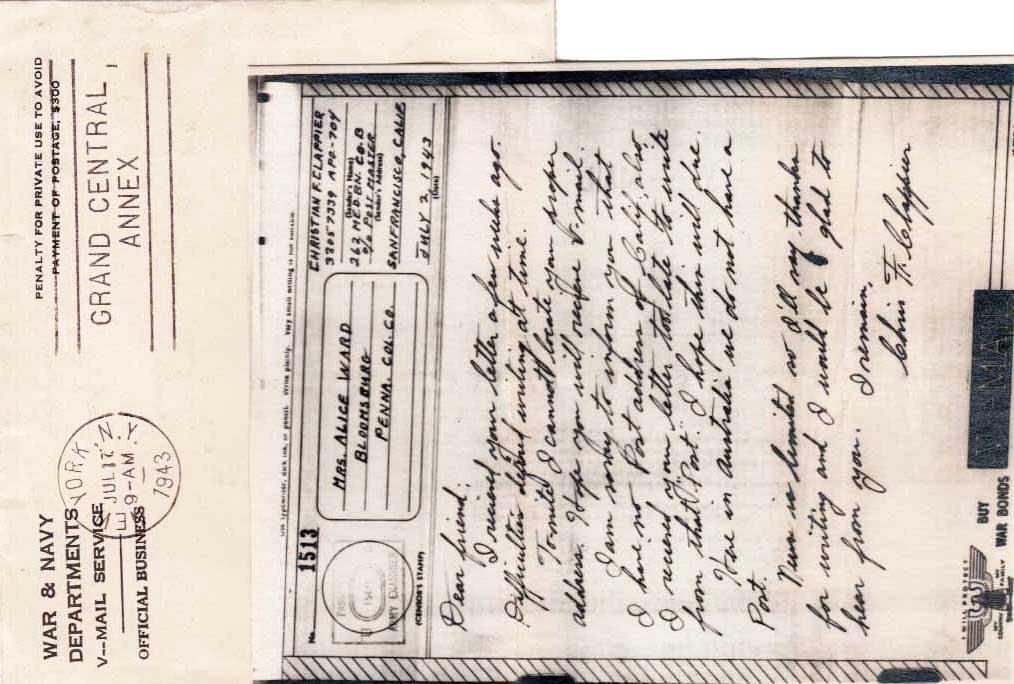 WAR & NAVY
DEPARTMENTS
V---MAIL SERVICE
OFFICIAL BUSINESS
YORK, N.Y.
JUL 12
9-AM
1943
PENALTY FOR PRIVATE USE TO AVOID
PAYMENT OF POSTAGE, $300
GRAND CENTRAL
ANNEX
Use typewriter, dark ink, or pencil. Write plainly. Very small writing is not suitable.
No.
1513
(CENSOR'S STAMP)
MRS. ALICE WARD
BLOOMSBURG
PENNA. COL. CO.
CHRISTIAN F. CLAPPIER
33057339 APO-704
(Sender's Name)
262 MED. BN. CO. B
c/o POST MASTER
(Sender's Address)
SANFRANCISCO, CALIF
JULY 2, 1943
(Date)
Dear friend:
I received your letter a few weeks ago.
Difficulties delayed writing at time.
To-nite I cannot locate your proper
address. Hope you will receive V-mail.
I am sorry to inform you that
I have no Post address of Calif. also
I received your letter too late to write
from that "Post". I hope this will due.
Here in Australia we do not have a
Post.
News is limited so I'll say thanks
for writing and I would be glad to
hear from you.
I remain,
Chris F. Clappier
V-MAIL
I WILL PROTECT
MY COUNTRY
MY FAMILY
BUY
WAR BONDS